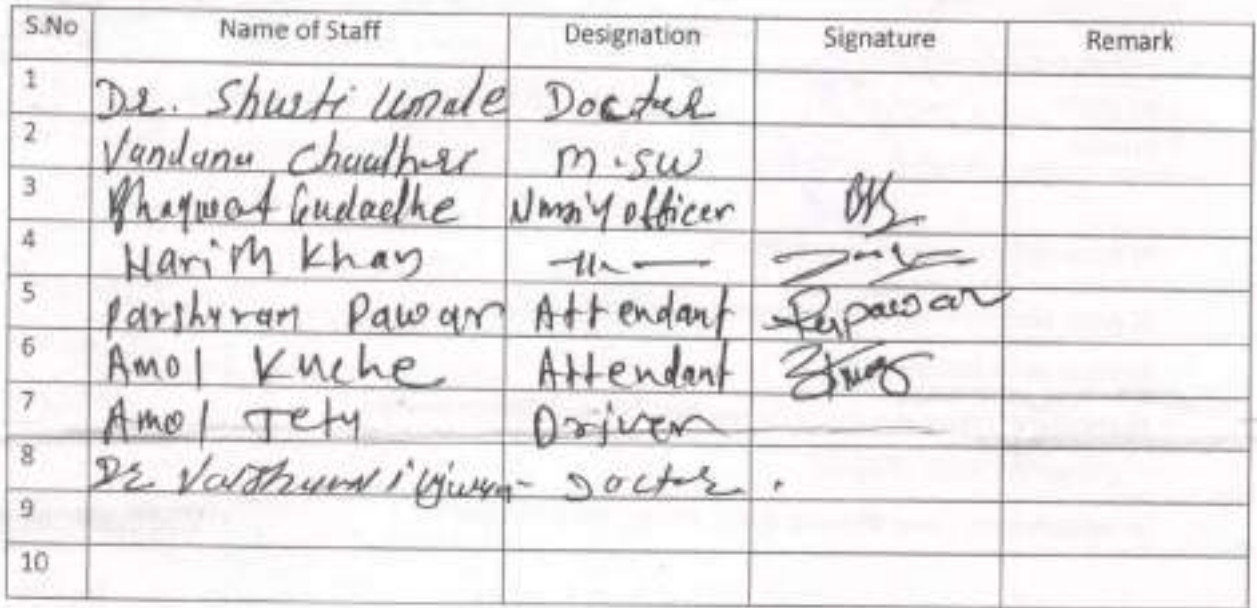 S.No Name of Staff Designation Signature Remark
1 Dr. Shruti Umale Doctor
2 Vandana Chaudhari M.SW
3 Bhagwat Gudadhe officer
4 Harim Khan -||-
5 Parshuram Pawar Attendant
6 Amol Kuche Attendant
7 Amol Driver
8 Dr Doctor
9
10